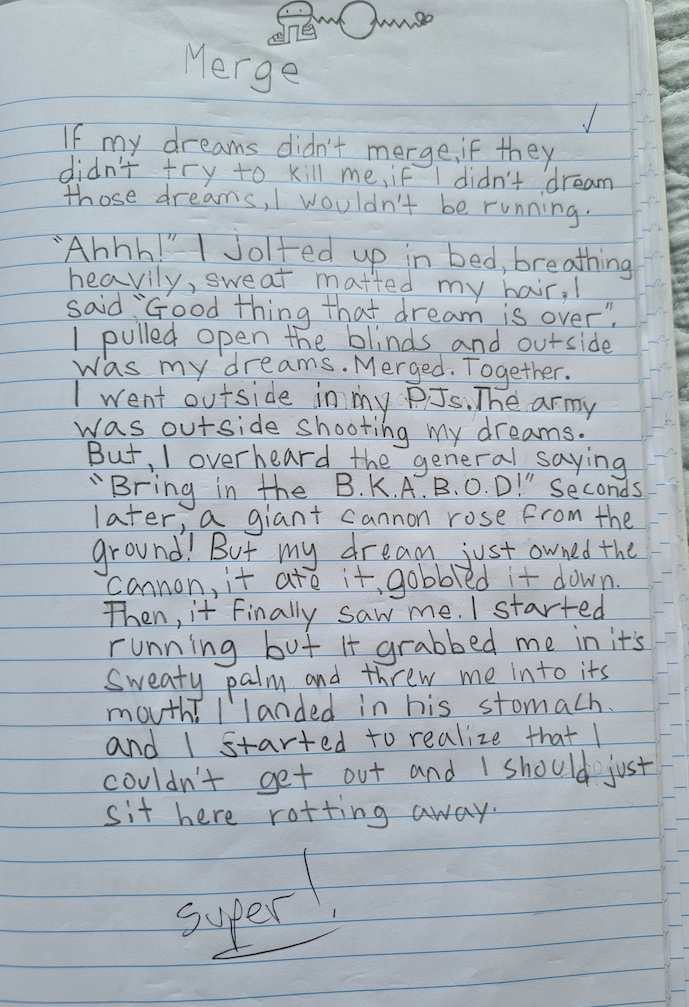 Merge
If my dreams didn't merge, if they
didn't try to kill me, if I didn't dream
those dreams, I wouldn't be running.
"Ahhh!" I jolted up in bed, breathing
heavily, sweat matted my hair, I
said "Good thing that dream is over".
I pulled open the blinds and outside
was my dreams. Merged. Together.
I went outside in my PJs. The army
was outside shooting my dreams.
But, I overheard the general saying
"Bring in the B.K.A.B.O.D!" Seconds
later, a giant cannon rose from the
ground! But my dream just owned the
cannon, it ate it, gobbled it down.
Then, it finally saw me. I started
running but it grabbed me in it's
sweaty palm and threw me into its
mouth! I landed in his stomach.
and I started to realize that I
couldn't get out and I should just
sit here rotting away.
super!